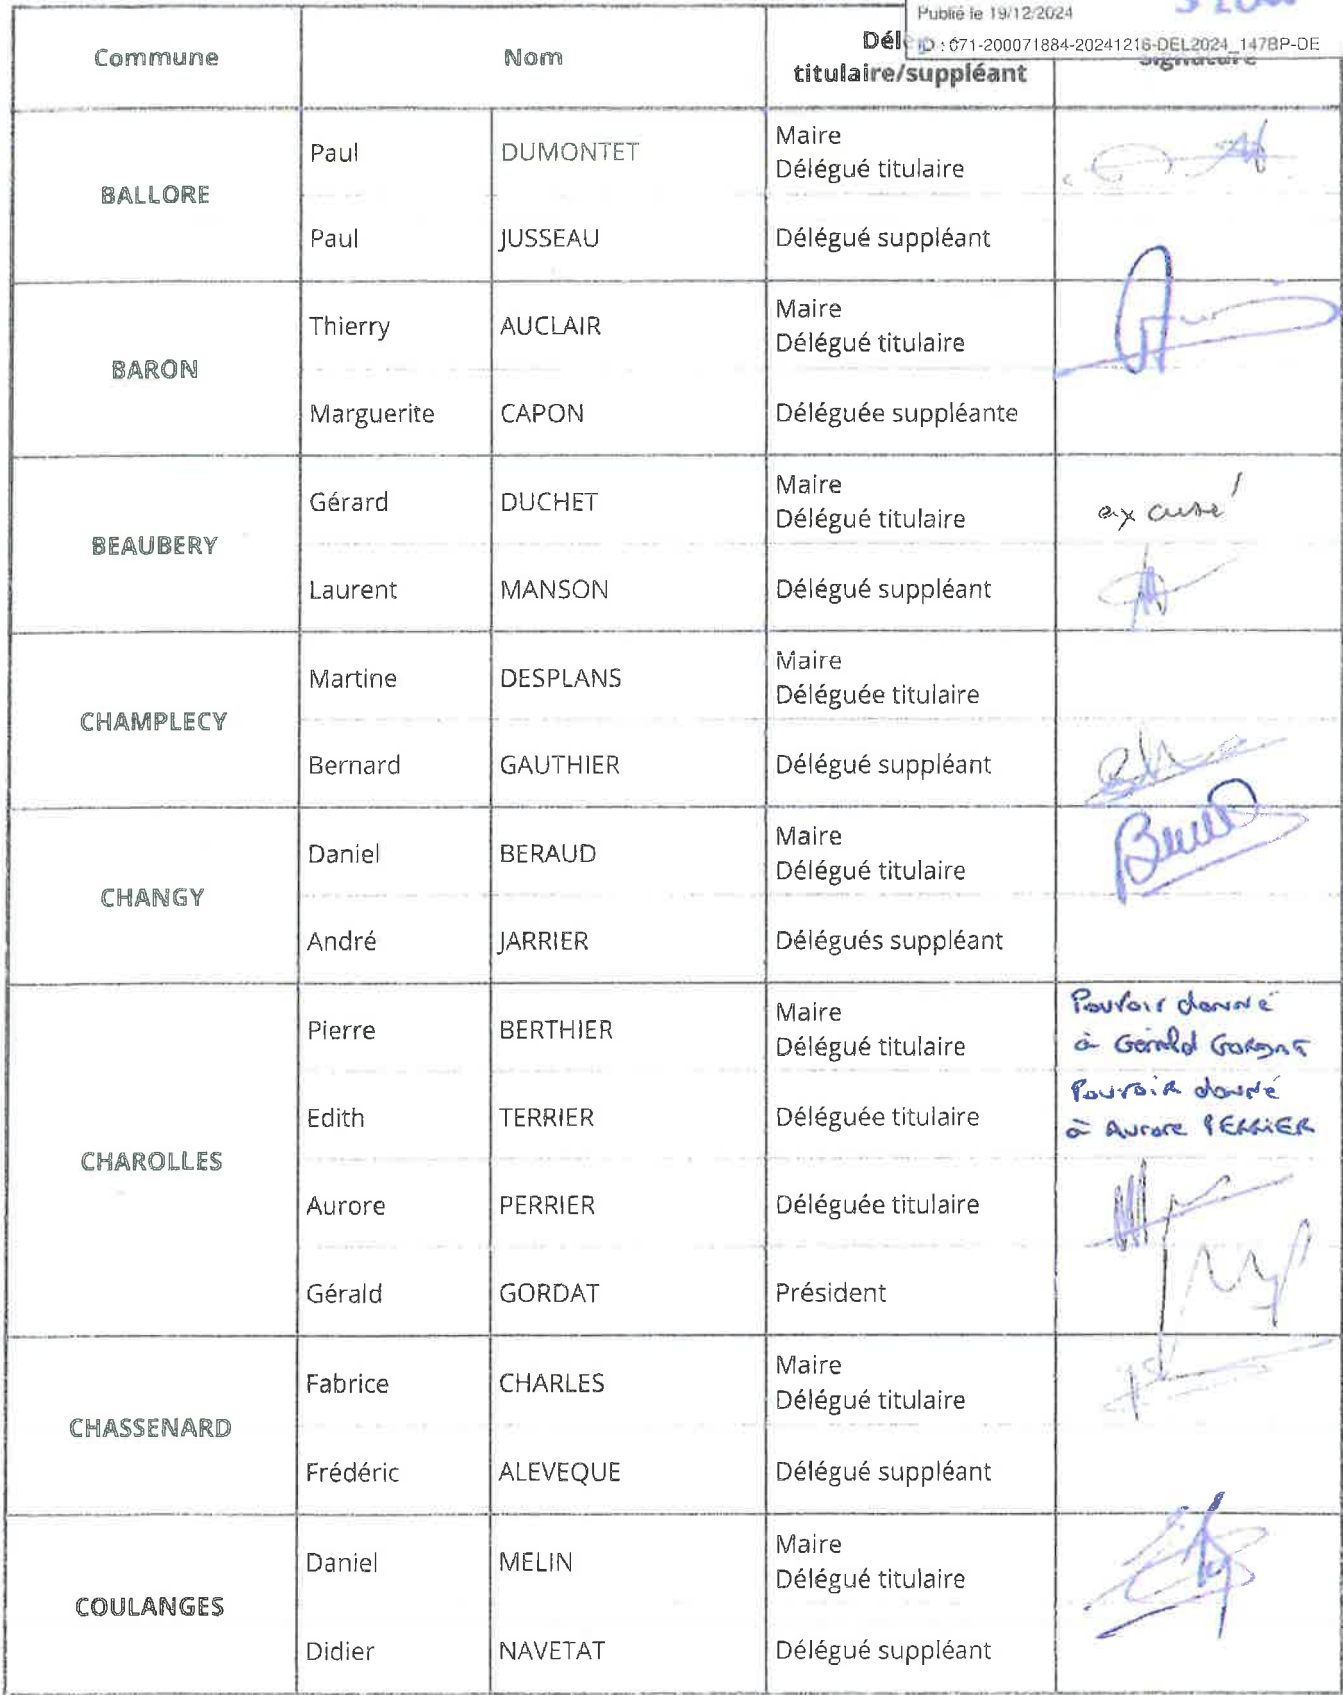 Publié le 19/12/2024
ID : 071-200071884-20241216-DEL2024_147BP-DE
Commune Nom Dél
titulaire/suppléant Signature
BALLORE
Paul DUMONTET Maire
Délégué titulaire
Paul JUSSEAU Délégué suppléant
BARON
Thierry AUCLAIR Maire
Délégué titulaire
Marguerite CAPON Déléguée suppléante
BEAUBERY
Gérard DUCHET Maire
Délégué titulaire excusé
Laurent MANSON Délégué suppléant
CHAMPLECY
Martine DESPLANS Maire
Déléguée titulaire
Bernard GAUTHIER Délégué suppléant
CHANGY
Daniel BERAUD Maire
Délégué titulaire
André JARRIER Délégués suppléant
CHAROLLES
Pierre BERTHIER Maire
Délégué titulaire
Pouvoir donné
à Gérald GORDAT
Edith TERRIER Déléguée titulaire
Pouvoir donné
à Aurore PERRIER
Aurore PERRIER Déléguée titulaire
Gérald GORDAT Président
CHASSENARD
Fabrice CHARLES Maire
Délégué titulaire
Frédéric ALEVEQUE Délégué suppléant
COULANGES
Daniel MELIN Maire
Délégué titulaire
Didier NAVETAT Délégué suppléant